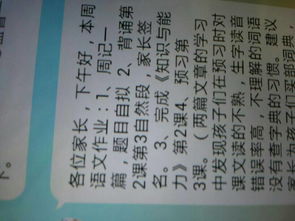 各位家长，下午好，本周
语文作业：1、周记一
篇，题目自拟 2、背诵第
2课第3自然段，家长签
名。3、完成《知识与能
力》第2课4、预习第
3课。（两篇文章的学习
中发现孩子们在预习时对
课文读的不熟，生字读音
错误率高，不理解的词语
没有查字典的习惯。建议
家长为孩子们买部词典，